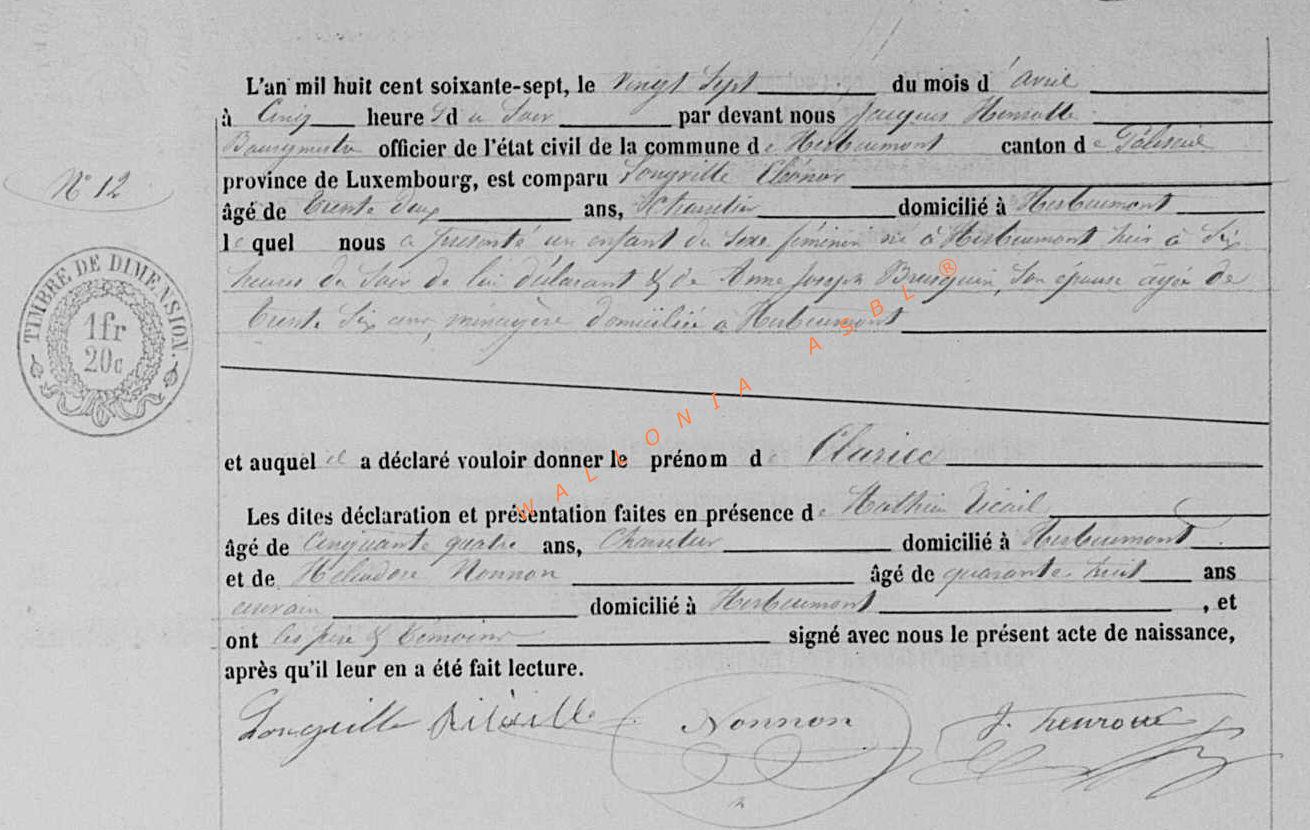 L'an mil huit cent soixante-sept, le Vingt Sept du mois d'avril
à Cinq heures du Soir par devant nous Jacques
Bourgmestre officier de l'état civil de la commune de Herbeumont canton de Paliseul
N° 12
province de Luxembourg, est comparu Longville Eléonor
âgé de Trente deux ans, domicilié à Herbeumont
lequel nous a présenté un enfant du Sexe féminin né à Herbeumont hier à Six
heures du Soir de lui déclarant & de Anne Joseph Bursquin, Son épouse agée de
Trente Six ans, ménagère domiciliée à Herbeumont
TIMBRE DE DIMENSION.
1fr
20c
et auquel il a déclaré vouloir donner le prénom d Clarice
Les dites déclaration et présentation faites en présence de Mathieu
âgé de Cinquante quatre ans, domicilié à Herbeumont
et de Héliodore Nonnon âgé de quarante huit ans
domicilié à Herbeumont , et
ont les père & témoins signé avec nous le présent acte de naissance,
après qu'il leur en a été fait lecture.
Longville Nonnon J.
WALLONIA ASBL ®